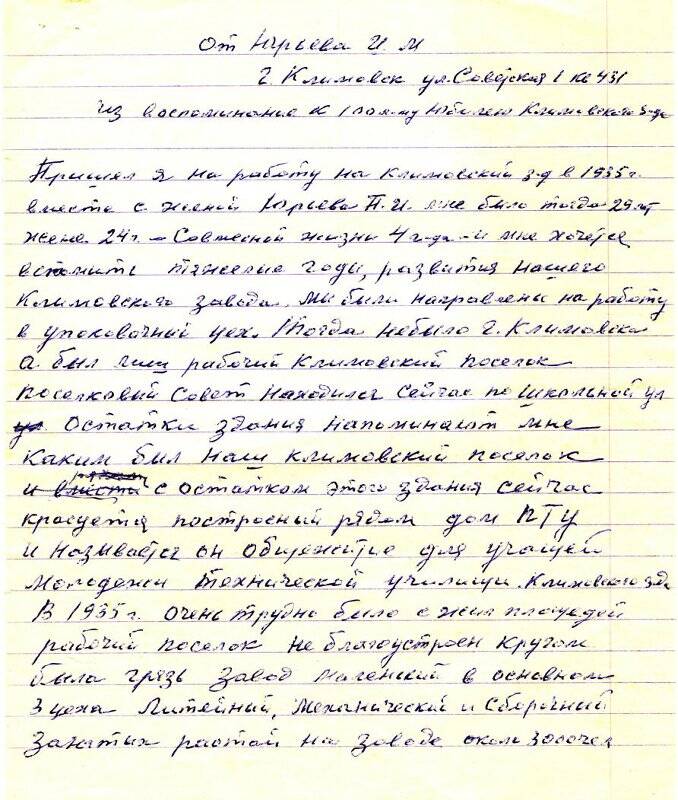 От Юрьева И. М
г. Климовск ул. Советская 1 кв 431
из воспоминание к 100лет. му Юбилею Климовского з-да
Пришел я на работу на Климовский з-д в 1935 г.
вместе с женой Юрьева П. И. мне было тогда 29 лет
жене 24 г. – Совместной жизни 4 года – и мне хочется
вспомнить тяжелые годы, развития нашего
Климовского завода. Мы были направлены на работу
в упоковочный цех. Тогда небыло г. Климовска
а был лиш рабочий Климовский поселок
поселковый Совет находился сейчас по Школьной ул
Остатки здания напоминают мне
каким был наш климовский поселок
рядом с остатком этого здания сейчас
красуется построеный рядом дом ПТУ
и называется он Общежитие для учащей
молодежи технической училищи. Климовского з-да
В 1935 г. очень трудно было с жил площадей
рабочий поселок не благоустроен кругом
была грязь завод маленский в основном
3 цеха Литейный, Механический и Сборочный
Занятых работой на заводе около 300 чел